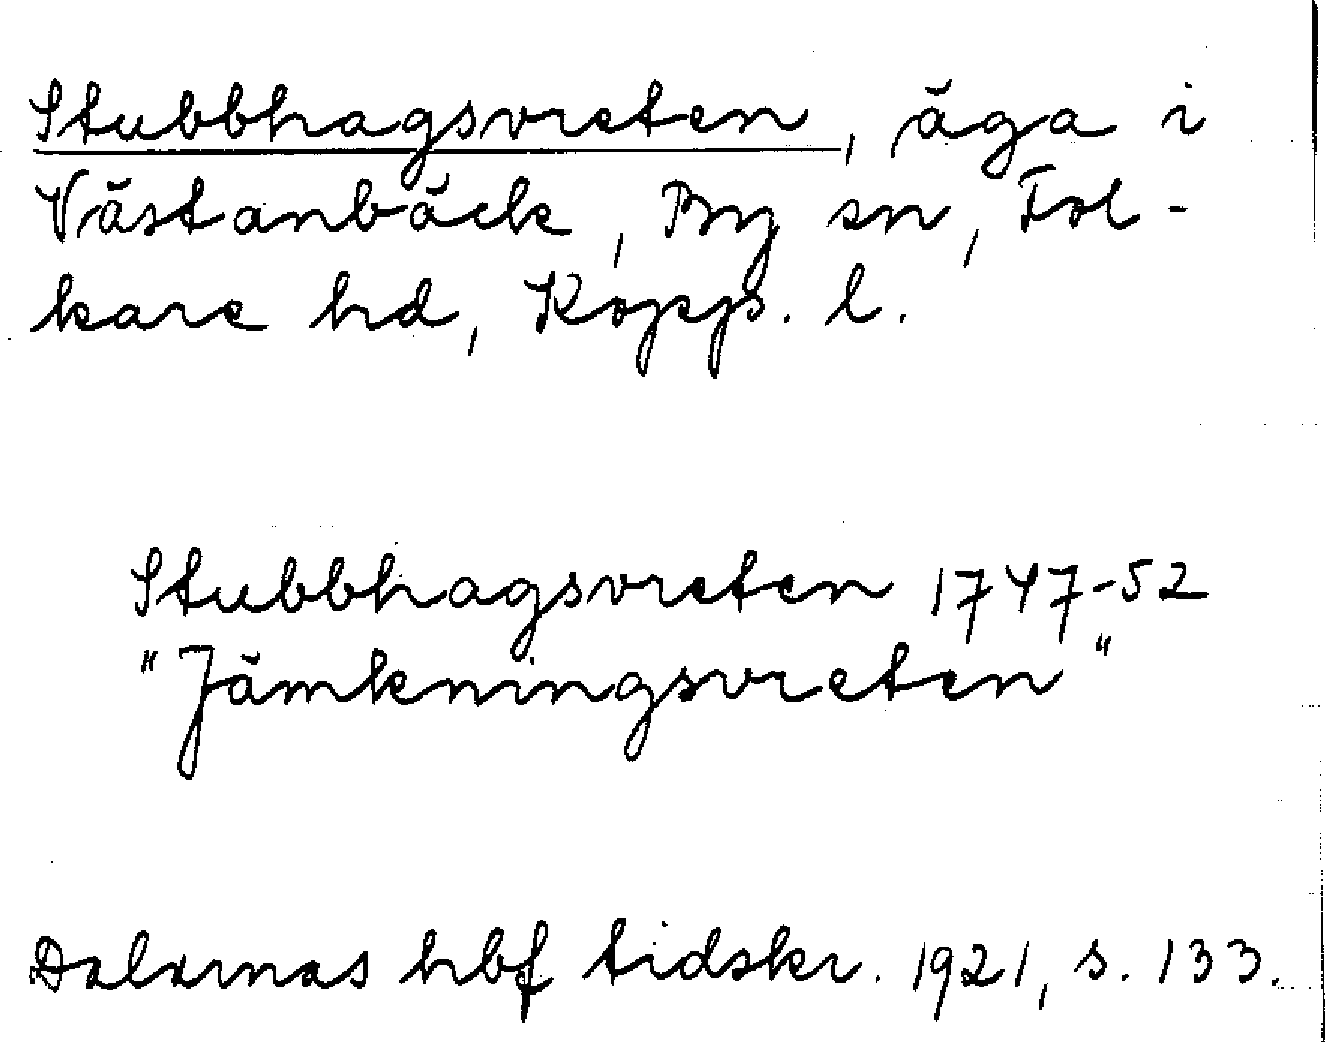 Stubbhagsvreten, äga i
Västanbäck, By sn, Fol-
kare hd, Kopps. l.
Stubbhagsvreten 1747-52
"Jämkningsvreten"
Dalarnas hbf tidskr. 1921, s. 133.